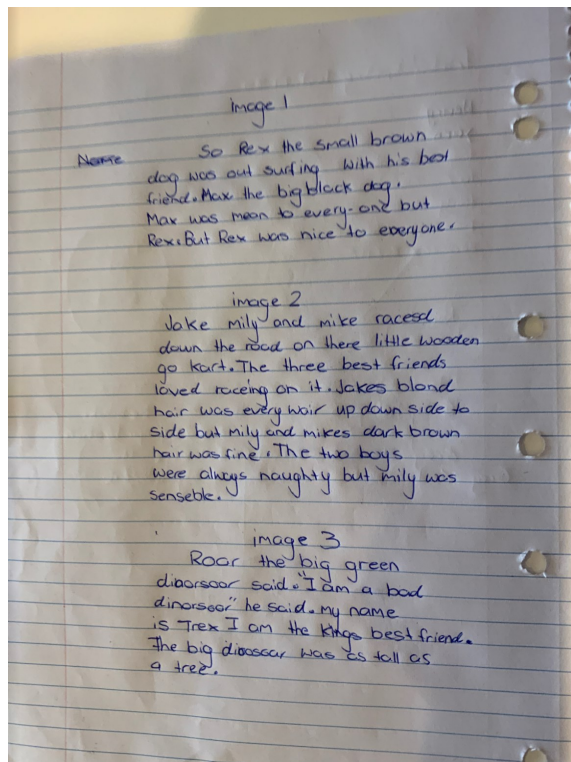 image 1
Name So Rex the small brown
dog was out surfing with his best
friend. Max the big black dog.
Max was mean to every-one but
Rex. But Rex was nice to everyone.
image 2
Jake mily and mike racesd
down the road on there little wooden
go kart. The three best friends
loved raceing on it. Jakes blond
hair was every wair up down side to
side but mily and mikes dark brown
hair was fine. The two boys
were always naughty but mily was
senseble.
image 3
Roar the big green
dioorsoor said. "I am a bad
dinorsoor" he said. my name
is Trex I am the kings best friend.
The big dioosoar was as tall as
a tree.